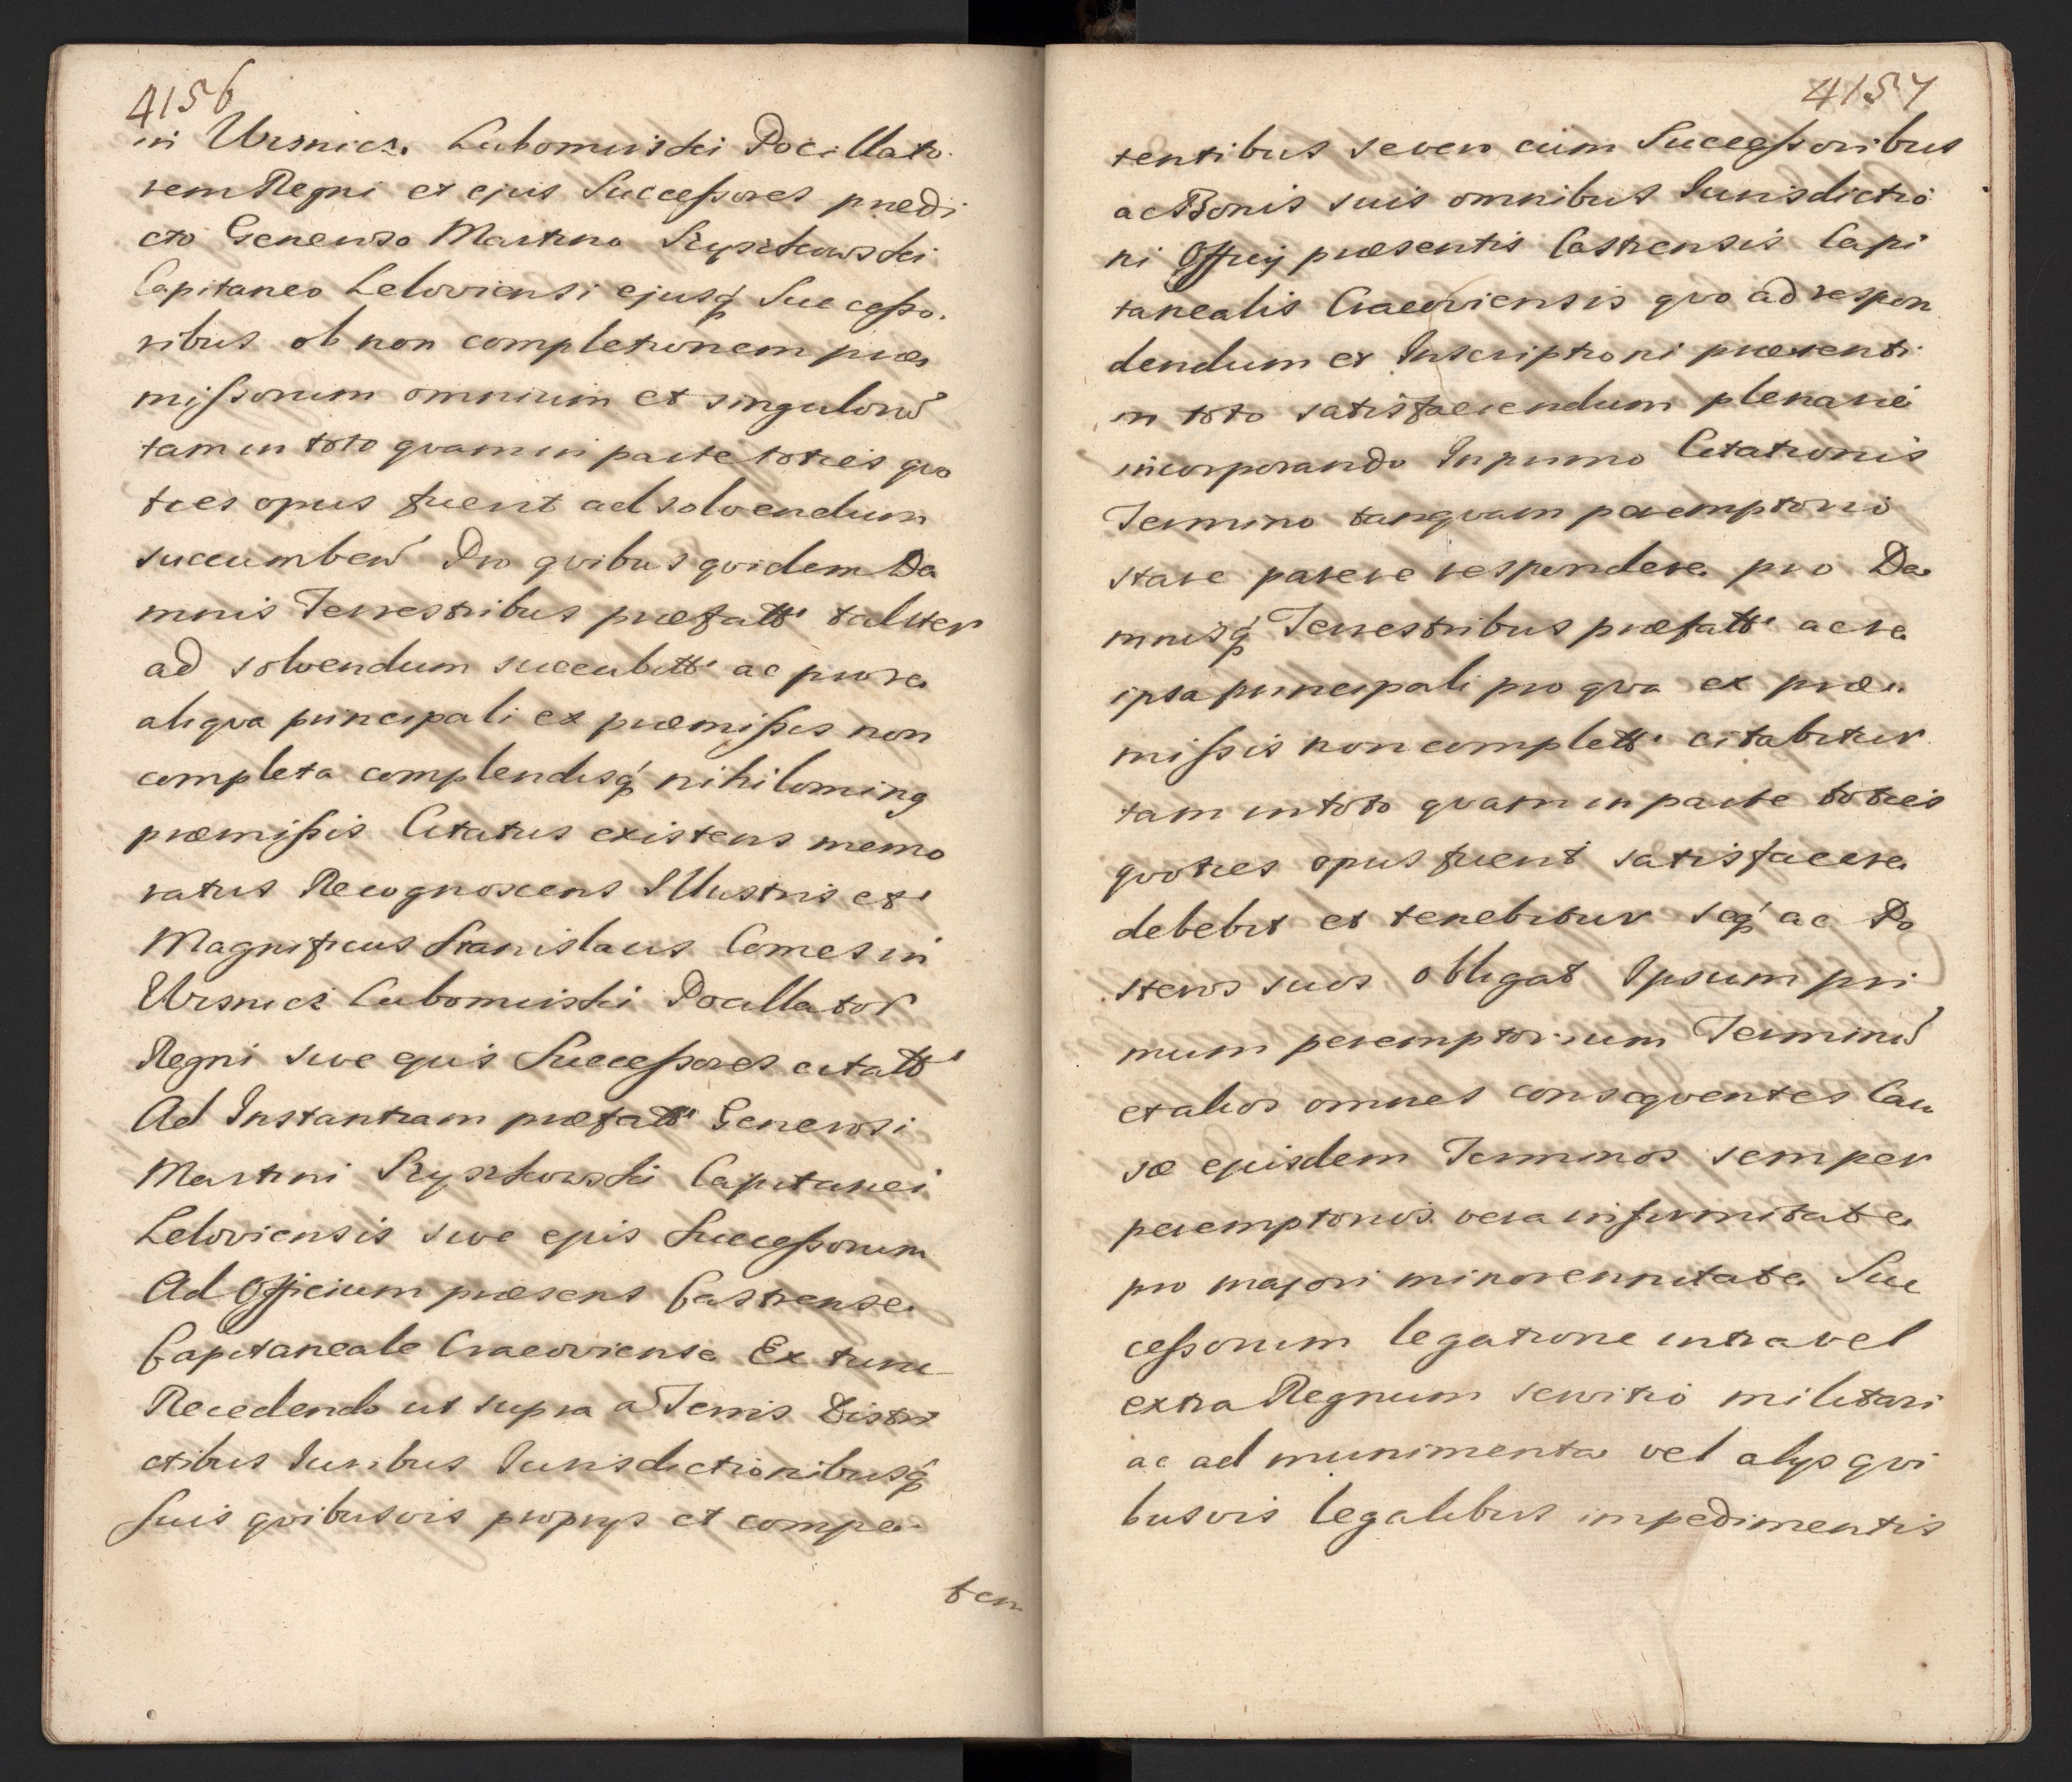 4156
in Ursnicz. Lubomirski Pocillato
rem Regni et ejus Successores prædi
cto Generoso Martino Szyszkowski
Capitaneo Leloviensi ejusq́ Successo.
ribus ob non completionem præ
missorum omnium et singuloru᷃
tam in toto qvam in parte toties qvo
ties opus fuerit ad solvendum
succumberet Pro qvibus qvidem Da
mnis Terrestribus præfatt taliter
ad solvendum succubitt ac pro re
aliqva principali ex præmissis non
completa complendisq́ nihilominq
præmissis Citatus existens memo
ratus Recognoscens Illustris et
Magnificus Stanislaus Comes in
Ursnicz Lubomirski Pocillator
Regni sive ejus Successores citatt
Ad Instantiam præfatt Generosi
Martini Szyszkowski Capitanei
Leloviensis sive ejus Successorum
Ad Officium præsens Castrense
Capitaneale Cracoviense Ex tunc
Recedendo ut supra a Terris Distri
ctibus Iuribus Iurisdictionibusq́
suis qvibusvis proprys et compe
ten
4157
tentibus se vero cum Successoribus
ac Bonis suis omnibus Iurisdictio
ni Officy præsentis Castrensis Capi
tanealis Cracoviensis qvo ad respon
dendum et Inscriptioni præsenti
in toto satisfaciendum plenarie
incorporando In primo Citationis
Termino tanqvam peremptorio
stare parere respondere pro Da
mnisq́ Terrestribus præfatt ac re
ipsa principali pro qva ex præ
missis non complett citabitur
tam in toto qvam in parte toties
qvoties opus fuerit satisfacere
debebit et tenebitur seq́ ac Po
steros suos obligat Ipsum pri
mum peremptorium Terminu᷃
et alios omnes conseqventes Cau
sæ ejusdem Terminos semper
peremptorios vera infirmitate
pro majori minorennitate Suc
cessorum legatione intra vel
extra Regnum servitio militari
ac ad munimenta vel alys qvi
busvis legalibus impedimentis